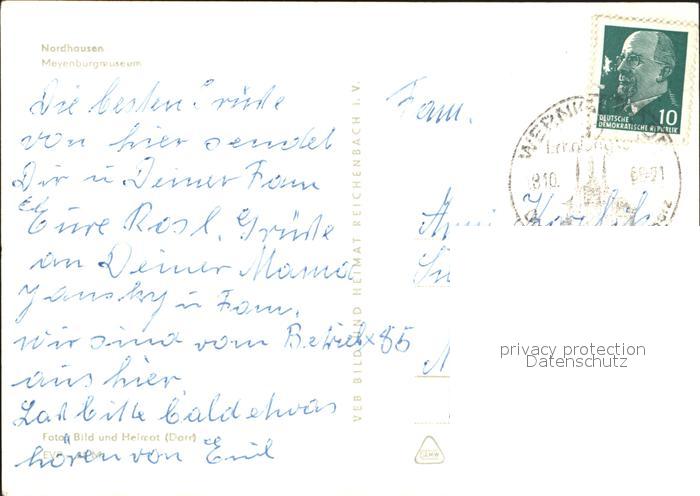 Nordhausen
Meyenburgmuseum
Die besten Grüße
von hier sendet
Dir u Deiner Fam
Eure Rosl, Grüße
an Deiner Mama
Jansky u Fam.
wir sind vom Betrieb
aus hier
Laß bitte bald etwas
hören von Euch
Foto: Bild und Heimat (Darr)
VEB BILD UND HEIMAT REICHENBACH I. V.
Fam.
DEUTSCHE
DEMOKRATISCHE REPUBLIK
10
privacy protection
Datenschutz